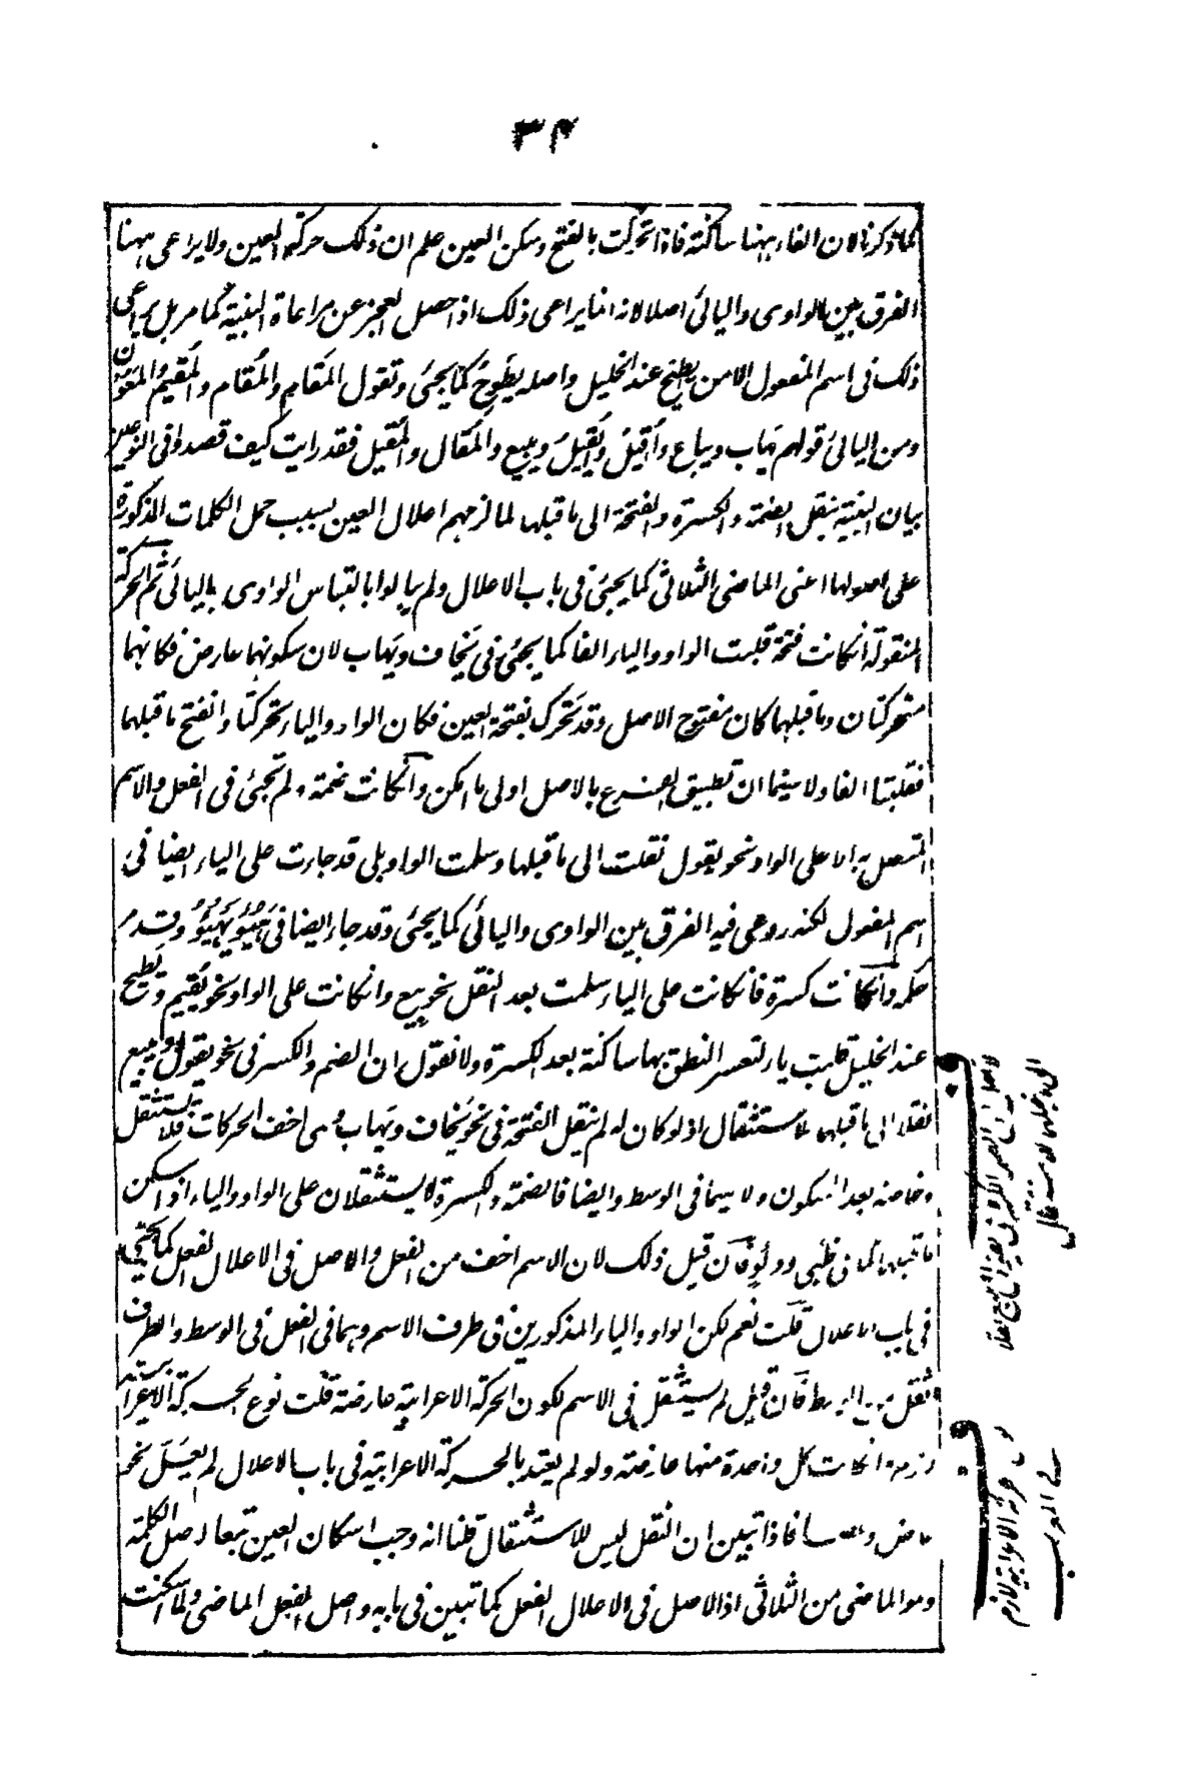 ٣٤
كما ذكرنا لان الفاء ههنا ساكنة فاذا تحركت بالفتح وسكن العين علم ان ذلك حركة العين ولا يراعى ههنا
الفرق بين الواوى واليائى اصلا لانه انما يراعى ذلك اذا حصل العجز عن مراعاة البنية كما مر بل يراعى
ذلك فى اسم المفعول الا من يطيح عند الخليل واصله يَطْوِحُ كما يجئ وتقول المَقام والمُقام والمُقيم والمَعُوْن
ومن اليائى قولهم يَهاب ويباع وأُقيلُ ويُقيلُ ويبيع والمَقال والمُقيل فقد رايت كيف قصدوا فى النوعين
بيان البنية بنقل الضمة والكسرة والفتحة الى ما قبلها لما لزمهم اعلال العين بسبب حمل الكلمات المذكورة
على اصولها اعنى الماضى الثلاثى كما يجئ فى باب الاعلال ولم يبالوا بالتباس الواوى باليائى ثم الحركة
المنقولة انكانت فتحة قلبت الواو والياء الفا كما يجئ فى يَخاف ويَهاب لان سكونهما عارض فكانهما
متحركتان وما قبلهما كان مفتوح الاصل وقد تحرك بفتحة العين فكان الواو والياء تحركتا وانفتح ما قبلهما
فقلبتا الفا ولا سيما ان تطبيق الفرع بالاصل اولى ما امكن وانكانت ضمة ولم تجئ فى الفعل والاسم
المتصل به الا على الواو نحو يقول نقلت الى ما قبلها وسلمت الواو بلى قد جاءت على الياء ايضا فى
اسم المفعول لكنه روعى فيه الفرق بين الواوى واليائى كما يجئ وقد جاء ايضا فى هَيُؤَ يَهْيُؤُ وقد مر
حكمه وانكانت كسرة فانكانت على الياء سلمت بعد النقل نحو يبيع وانكانت على الواو نحو يُقيم ويَطيح
عند الخليل قلبت ياء لتعسر النطق بها ساكنة بعد الكسرة ولا نقول ان الضم والكسر فى نحو يقول ويبيع
نقلا الى ما قبلهما للاستثقال اذ لو كان له لم ينقل الفتحة فى نحو يَخاف ويَهاب وهى اخف الحركات فلا يستثقل
وخاصة بعد السكون ولا سيما فى الوسط وايضا فالضمة والكسرة لا يستثقلان على الواو والياء اذا سكن
ما قبلهما كما فى ظَبْى ودَلْو فان قيل ذلك لان الاسم اخف من الفعل والاصل فى الاعلال الفعل كما يجئ
فى باب الاعلال قلت نعم لكن الواو والياء المذكورين فى طرف الاسم وهما فى الفعل فى الوسط والطرف
اثقل من الوسط فان قيل لم يستثقل فى الاسم لكون الحركة الاعرابية عارضة قلت نوع الحركة الاعرابية
لازمة وانكانت كل واحدة منها عارضة ولو لم يعتد بالحركة الاعرابية فى باب الاعلال لم يُعَلَّ نحو
قاض وعصا فاذا تبين ان النقل ليس للاستثقال قلنا انه وجب اسكان العين تبعا لاصل الكلمة
وهو الماضى من الثلاثى اذ الاصل فى الاعلال الفعل كما تبين فى بابه واصل الفعل الماضى ولما اسكنت